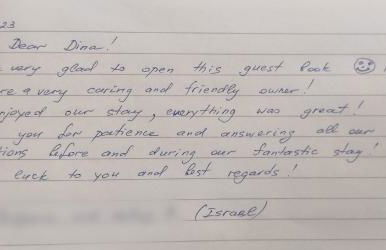 23
Dear Dina!
very glad to open this guest book
re a very caring and friendly owner!
njoyed our stay, everything was great!
you for patience and answering all our
tions before and during our fantastic stay!
luck to you and best regards!
(Israel)